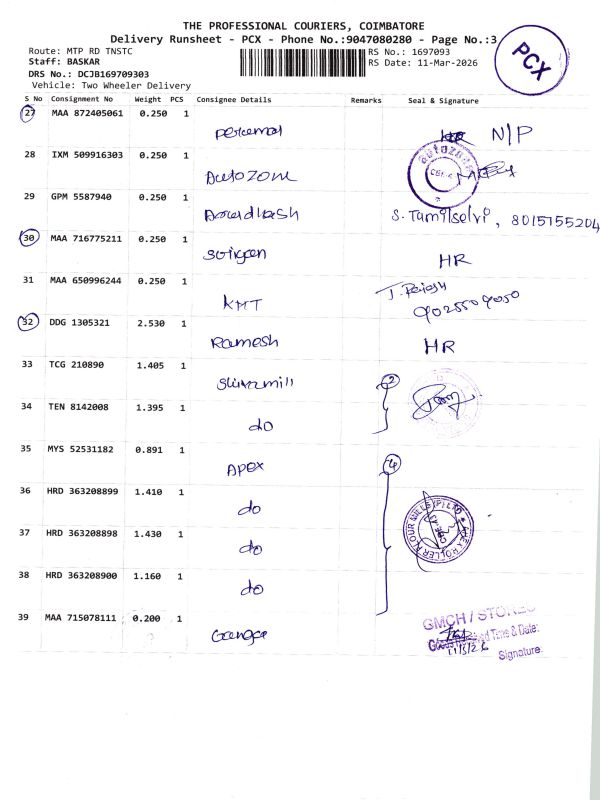 THE PROFESSIONAL COURIERS, COIMBATORE
Delivery Runsheet - PCX - Phone No.:9047080280 - Page No.:3
PCX
Route: MTP RD TNSTC
RS No.: 1697093
Staff: BASKAR
RS Date: 11-Mar-2026
DRS No.: DCJB169709303
Vehicle: Two Wheeler Delivery
S No Consignment No Weight PCS Consignee Details Remarks Seal & Signature
27 MAA 872405061 0.250 1
Perumal N/P
28 IXM 509916303 0.250 1
Autozone
autozone
29 GPM 5587940 0.250 1
S. Tamilselvi, 8015155204
30 MAA 716775211 0.250 1
HR
31 MAA 650996244 0.250 1
KMT
32 DDG 1305321 2.530 1
Ramesh HR
33 TCG 210890 1.405 1
2
34 TEN 8142008 1.395 1
do
35 MYS 52531182 0.891 1
Apex
4
36 HRD 363208899 1.410 1
do
37 HRD 363208898 1.430 1
do
APEX ROLLER FLOUR MILLS (P) LTD
38 HRD 363208900 1.160 1
do
39 MAA 715078111 0.200 1
Ganga
GMCH / STORES
Time & Date:
Signature.